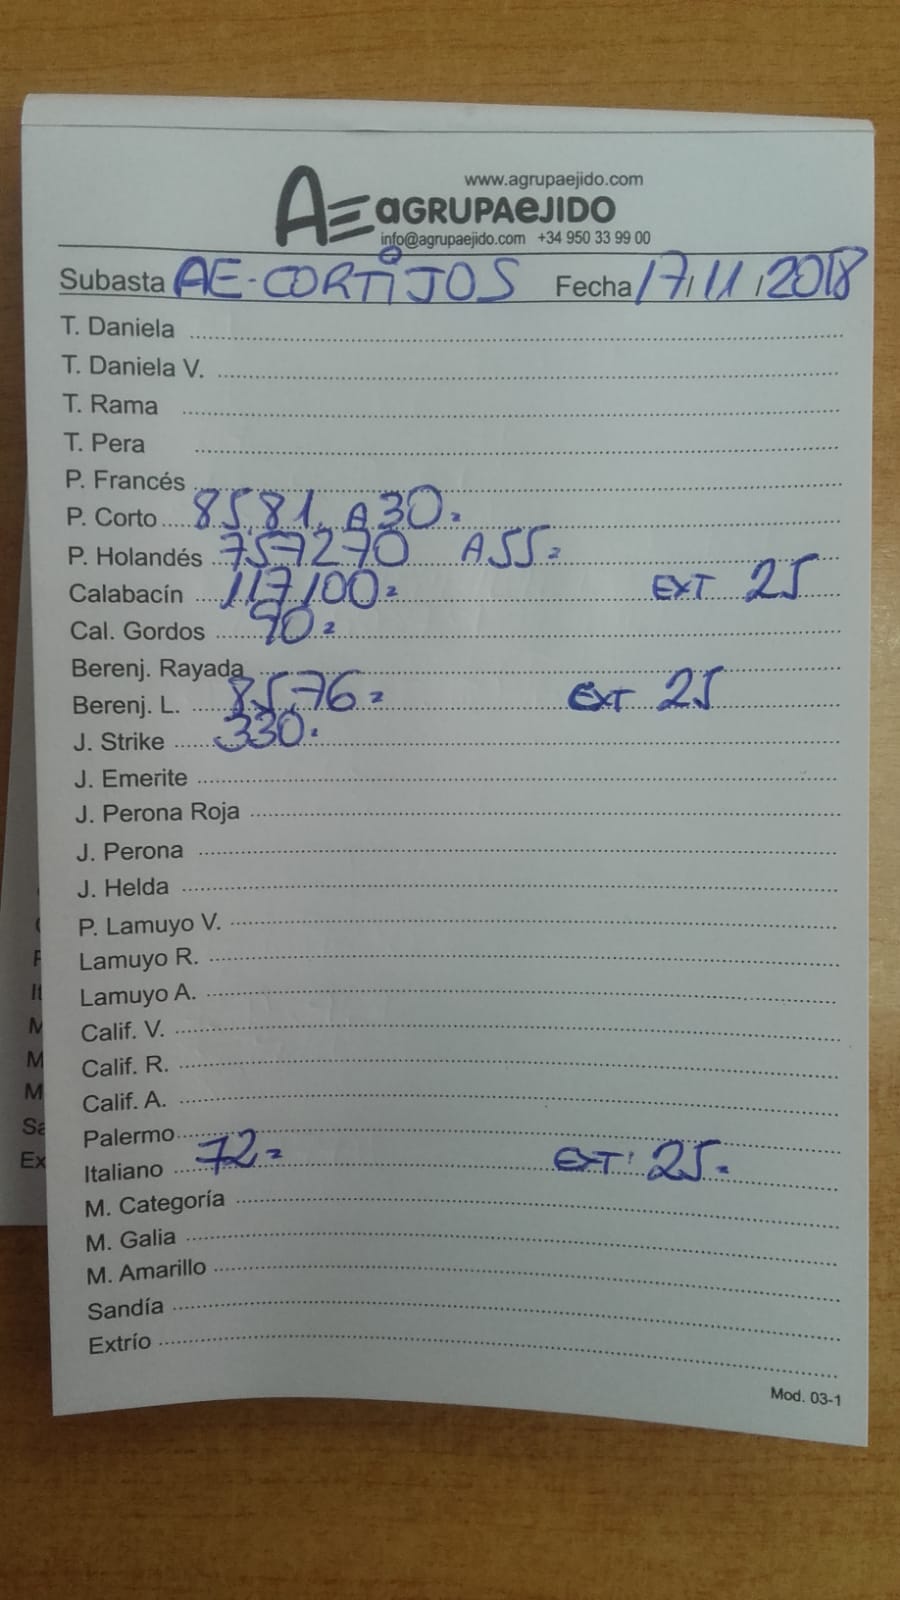 www.agrupaejido.com
AE aGRUPAeJIDO
info@agrupaejido.com +34 950 33 99 00
Subasta AE-CORTIJOS Fecha 17/11/2018
T. Daniela
T. Daniela V.
T. Rama
T. Pera
P. Francés
P. Corto 85,81, A 30.
P. Holandés 757270 A55=
Calabacín 117,100= EXT 25
Cal. Gordos 90=
Berenj. Rayada
Berenj. L. 85,76= EXT 25
J. Strike 330.
J. Emerite
J. Perona Roja
J. Perona
J. Helda
P. Lamuyo V.
Lamuyo R.
Lamuyo A.
Calif. V.
Calif. R.
Calif. A.
Palermo
Italiano 72= EXT 25.
M. Categoría
M. Galia
M. Amarillo
Sandía
Extrío
Mod. 03-1